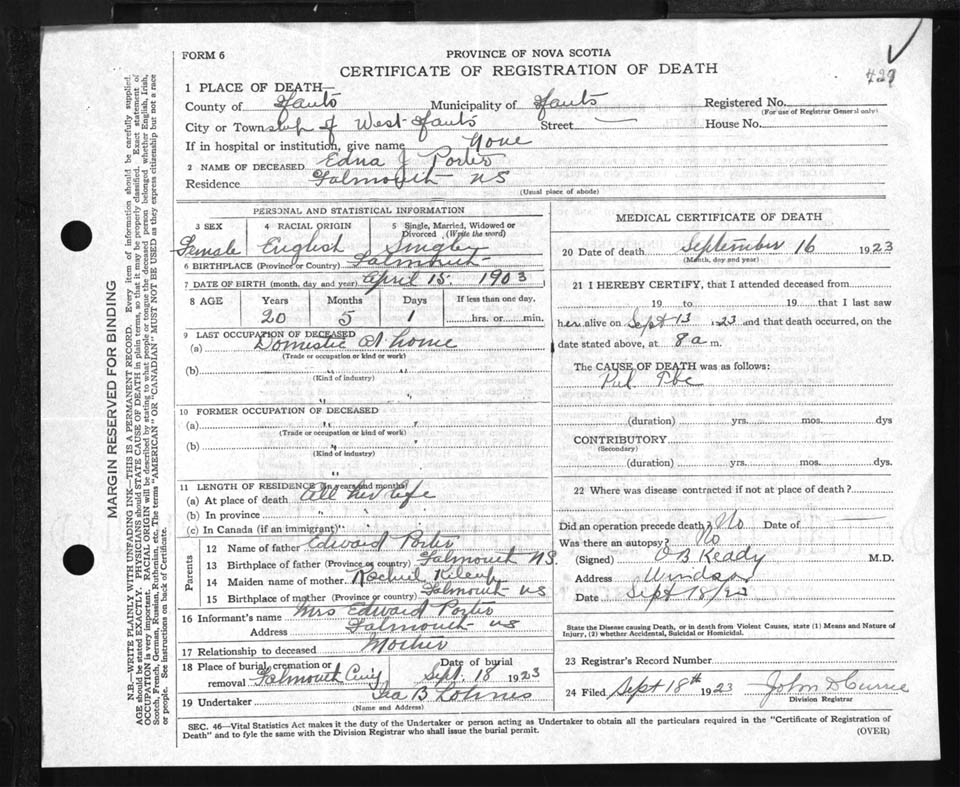 FORM 6
PROVINCE OF NOVA SCOTIA
CERTIFICATE OF REGISTRATION OF DEATH
429
1 PLACE OF DEATH—
County of Hants Municipality of Hants Registered No.
(For use of Registrar General only)
City or Township of West Hants Street — House No.
If in hospital or institution, give name None
2 NAME OF DECEASED Edna J Porter
Residence Falmouth NS
(Usual place of abode)
PERSONAL AND STATISTICAL INFORMATION
3 SEX 4 RACIAL ORIGIN 5 Single, Married, Widowed or Divorced (Write the word)
Female English Single
6 BIRTHPLACE (Province or Country) Falmouth
7 DATE OF BIRTH (month, day and year) April 15. 1903
8 AGE Years Months Days If less than one day,
20 5 1 hrs. or min.
9 LAST OCCUPATION OF DECEASED
(a) Domestic At home
(Trade or occupation or kind of work)
(b) " "
(Kind of industry)
10 FORMER OCCUPATION OF DECEASED
(a) " "
(Trade or occupation or kind of work)
(b) " "
(Kind of industry)
11 LENGTH OF RESIDENCE (in years and months)
(a) At place of death All her life
(b) In province " " "
(c) In Canada (if an immigrant) " " "
Parents
12 Name of father Edward Porter
13 Birthplace of father (Province or country) Falmouth N.S.
14 Maiden name of mother
15 Birthplace of mother (Province or country) Falmouth NS
16 Informant's name Mrs Edward Porter
Address Falmouth NS
17 Relationship to deceased Mother
18 Place of burial, cremation or removal Falmouth Date of burial Sept. 18 1923
19 Undertaker B
(Name and Address)
MEDICAL CERTIFICATE OF DEATH
20 Date of death September 16 1923
(Month, day and year)
21 I HEREBY CERTIFY, that I attended deceased from
19 to 19 that I last saw
her alive on Sept 13 1923 and that death occurred, on the
date stated above, at 8 a m.
The CAUSE OF DEATH was as follows:
Pul. Tbc
(duration) yrs. mos. dys
CONTRIBUTORY
(Secondary)
(duration) yrs. mos. dys.
22 Where was disease contracted if not at place of death?
Did an operation precede death? No Date of —
Was there an autopsy? No
(Signed) O B Keddy M.D.
Address Windsor
Date Sept 18/23
State the Disease causing Death, or in death from Violent Causes, state (1) Means and Nature of
Injury, (2) whether Accidental, Suicidal or Homicidal.
23 Registrar's Record Number
24 Filed Sept 18th 1923 John D Currie
Division Registrar
SEC. 46—Vital Statistics Act makes it the duty of the Undertaker or person acting as Undertaker to obtain all the particulars required in the "Certificate of Registration of
Death" and to fyle the same with the Division Registrar who shall issue the burial permit. (OVER)
MARGIN RESERVED FOR BINDING
N.B.—WRITE PLAINLY WITH UNFADING INK—THIS IS A PERMANENT RECORD. Every item of information should be carefully supplied.
AGE should be stated EXACTLY. PHYSICIANS should STATE CAUSE OF DEATH in plain terms, so that it may be properly classified. Exact statement of
OCCUPATION is very important. RACIAL ORIGIN will be described by stating to what people or tongue the deceased person belonged whether English, Irish,
Scotch, French, German, Russian, Ruthenian, etc. The terms "AMERICAN" OR "CANADIAN" MUST NOT BE USED as they express citizenship but not a race
or people. See instructions on back of Certificate.